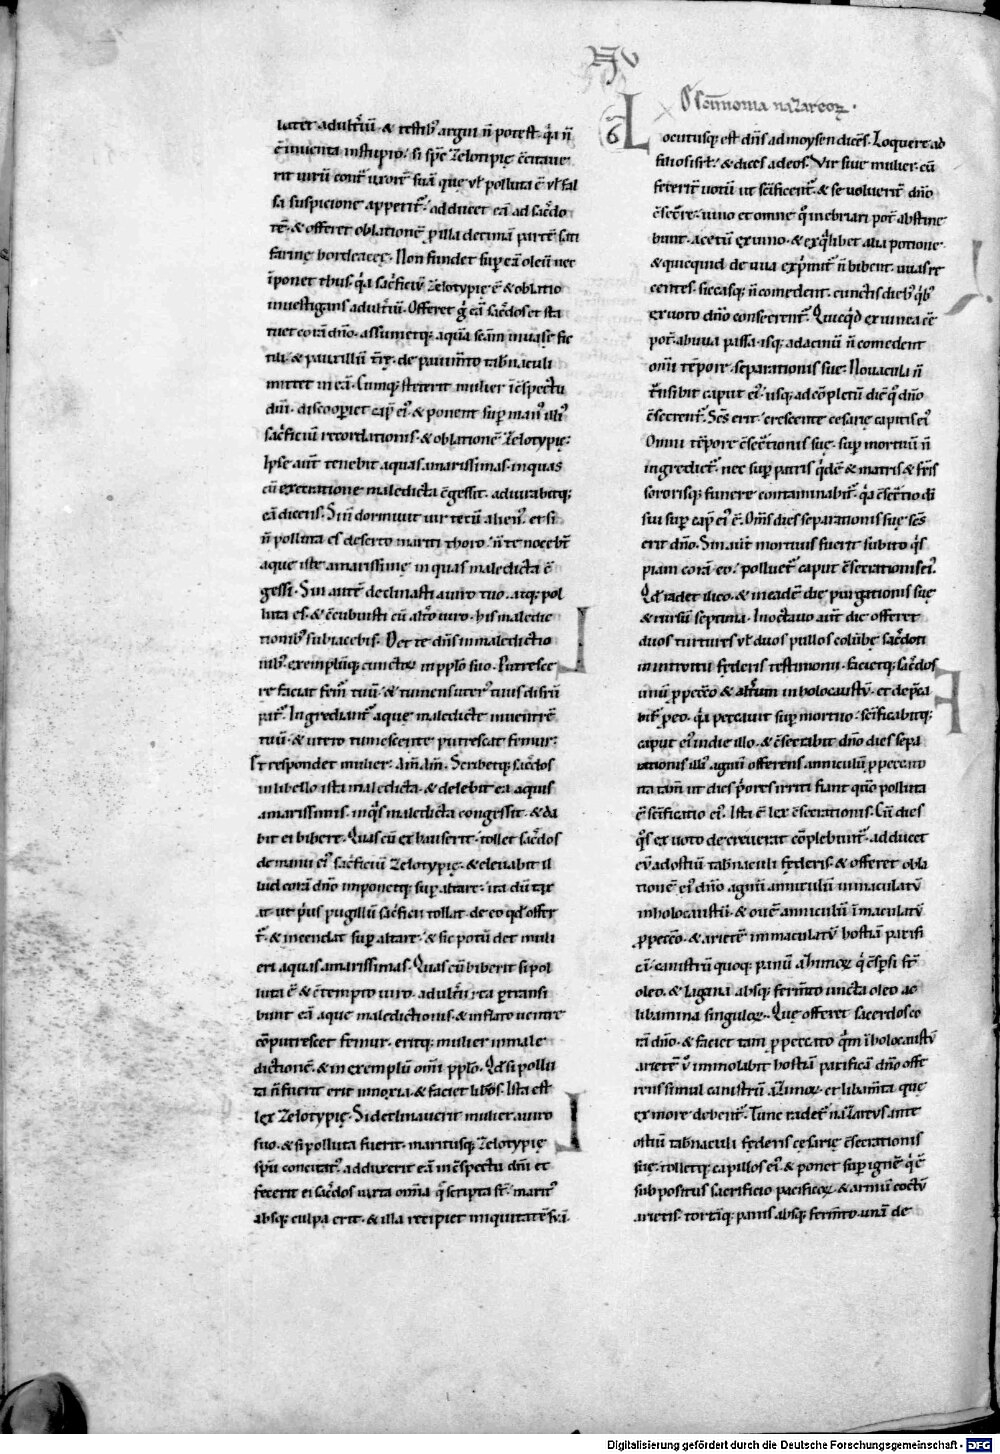 latet adult̄iū · & testib; argui n̄ potest · q̇a n̄
ē inuenta instupro · si sp̄c zelotipię c̄citaue
rit uirū cont̄ uxorē suā que ul̄ polluta ē ul̄ fal
sa suspicione appetit̄ · adducet eā ad sac̄do
tē · & offeret oblationē p illa decimā partē sati
farinę hordeacęę · Non fundet sup eā oleū nec
īponet thus · q̇a sac̄ficiū zelotypię ē · & oblatio
inuestigans adult̄iū · Offeret ḡ eā sac̄dos et sta
tuet corā dn̄o · assumetq; aquā sc̄am inuase fic
tili · & pauxillū t̄rę · de pauim̄to tab̄naculi
mittet in eā · Cumq; steterit mulier īc̄spectu
dn̄i · discooperiet cap̄ ei᷒ · & ponent sup man᷒ illi᷒
sac̄ficiū recordationis · & oblationē zelotypię ·
Ipse aut̄ tenebit aquas amarissimas · in quas
cū execratione maledicta c̄gessit · adiurabitq;
eā dicens · Si n̄ dormiuit uir tecū alien᷒ · et si
n̄ polluta es deserto mariti thoro · n̄ te nocebt̄
aque iste amarissimę in quas maledicta c̄
gessi · Sin aut̄ declinasti auiro tuo · atq; pol
luta es · & c̄cubuisti cū alt̄o uiro · his maledic
tionib; subiacebis · Det te dn̄s inmaledictio
nib; exemplūq; cunctoꝝ in pplo suo · Putresce
re faciat fem᷒ tuū · & tumens uter᷒ tuus disrū
pat̄ · Ingrediant̄ aque maledicte inuentrē
tuū · & utero tumescente putrescat femur ·
Et respondet mulier · am̄ am̄ · Scribetq; sac̄dos
in libello ista maledicta · & delebit ea aquis
amarissimis · in q̇s maledicta congessit · & da
bit ei bibere · Quas cū ex hauserit · tollet sac̄dos
de manu ei᷒ sac̄ficiū zelotypię · & eleuabit il
lud corā dn̄o imponetq; sup altare · ita dū tax
at ut p̄us pugillū sac̄ficii tollat de eo qd̄ offer
t̄ · & incendat sup altare · & sic potū det muli
eri aquas amarissimas · Quas cū biberit si pol
luta ē & c̄tempto uiro · adult̄ii rea ptransi
bunt eā aque maledictionis · & inflato uentre
cōputrescet femur · eritq; mulier inmale
dictionē · & in exemplū om̄i pplo · Qd̄ si pollu
ta n̄ fuerit erit innoxia · & faciet lib̄os · Ista est
lex zelotypię · Si declinauerit mulier auiro
suo · & si polluta fuerit · maritusq; zelotypię
sp̄u concitat᷒ · adduxerit eā in c̄spectu dn̄i et
fecerit ei sac̄dos iuxta om̄ia q̄ scripta st̄ · marit᷒
absq; culpa erit · & illa recipiet iniquitatē suā ·
nazareoꝝ ·
6
Locutusq; est dn̄s ad moysen dicēs · Loquere ad
filios isrl̄ · & dices ad eos · Vir siue mulier · cū
fecerit uotū ut sc̄ificent̄ · & se uoluerit dn̄o
c̄secr̄re · uino et omne q̇ inebriari pot̄ abstine
bunt · acetū ex uino · & ex q̇libet alia potione ·
& quicquid de uua exp̄mit̄ n̄ bibent · uuas re
centes · siccasq; n̄ comedent · cunctis dieb; q̇b;
ex uoto dn̄o consecrent̄ · Quicq̇d ex uinea ēē
pot̄ · ab uua passa · usq; ad acinū n̄ comedent
om̄i tēpore · separationis sue · Nouacula n̄
t̄nsibit caput ei᷒ · usq; ad cōpletū diē q̇ dn̄o
c̄secrent̄ · Sc̄s erit · crescente cesarię capitis ei᷒
Omni tēpore c̄sec̄tionis suę · sup mortuū n̄
ingrediet̄ · nec sup patris q̇dē & matris & fr̄is
sororisq; funere contaminabit̄ · q̇a c̄sec̄tio dī
sui sup cap̄ ei᷒ ē · Om̄s dies separationis suę sc̄s
erit dn̄o · Sin aut̄ mortuus fuerit subito q̇s
piam corā eo · polluet̄ caput c̄secrationis ei᷒ ·
Qd̄ radet ilico · & in eadē die purgationis suę
& rursū septima · In octauo aut̄ die offeret
duos turtures ul̄ duos pullos colūbę sac̄doti
in introitu fęderis testimonii · facietq; sac̄dos
unū p pecc̄o & alt̄rum in holocaustū · et dep̄ca
bit̄ p eo · q̇a peccauit sup mortuo · sc̄ificabitq;
caput ei᷒ indie illo · & c̄secrabit dn̄o dies sepa
rationis illi᷒ · agnū offerens anniculū p peccato
ita tam̄ ut dies p̄ores irriti fiant quō polluta
ē sc̄ificatio ei᷒ · Ista ē lex c̄secrationis · Cū dies
q̇s ex uoto decreuerat cōplebunt̄ · adducet
eū ad ostiū tab̄naculi fęderis · & offeret obla
tionē ei᷒ dn̄o · agnū anniculū inmaculatū
in holocaustū · & ouē anniculū īmaculatū
p pecc̄o · & arietē immaculatū hostiā pacifi
cā · canistrū quoq; panū azimoꝝ q̇ c̄spsi st̄
oleo · & lagana absq; ferm̄to uncta oleo ac
libamina singuloꝝ · Que offeret sacerdos co
rā dn̄o · & faciet tam p peccato q̇m ī holocaustū
arietē ū immolabit hostiā pacificā dn̄o offe
rens simul canistrū azimoꝝ · et libam̄ta quę
ex more debent̄ · Tunc radet̄ nazareus ante
ostiū tab̄naculi fęderis cęsarię c̄secrationis
suę · tolletq; capillos ei᷒ · & ponet sup ignē q̇ ē
subpositus sacrificio pacificoꝝ · & armū coctū
arietis · tortāq; panis absq; ferm̄to unā de
Digitalisierung gefördert durch die Deutsche Forschungsgemeinschaft - DFG